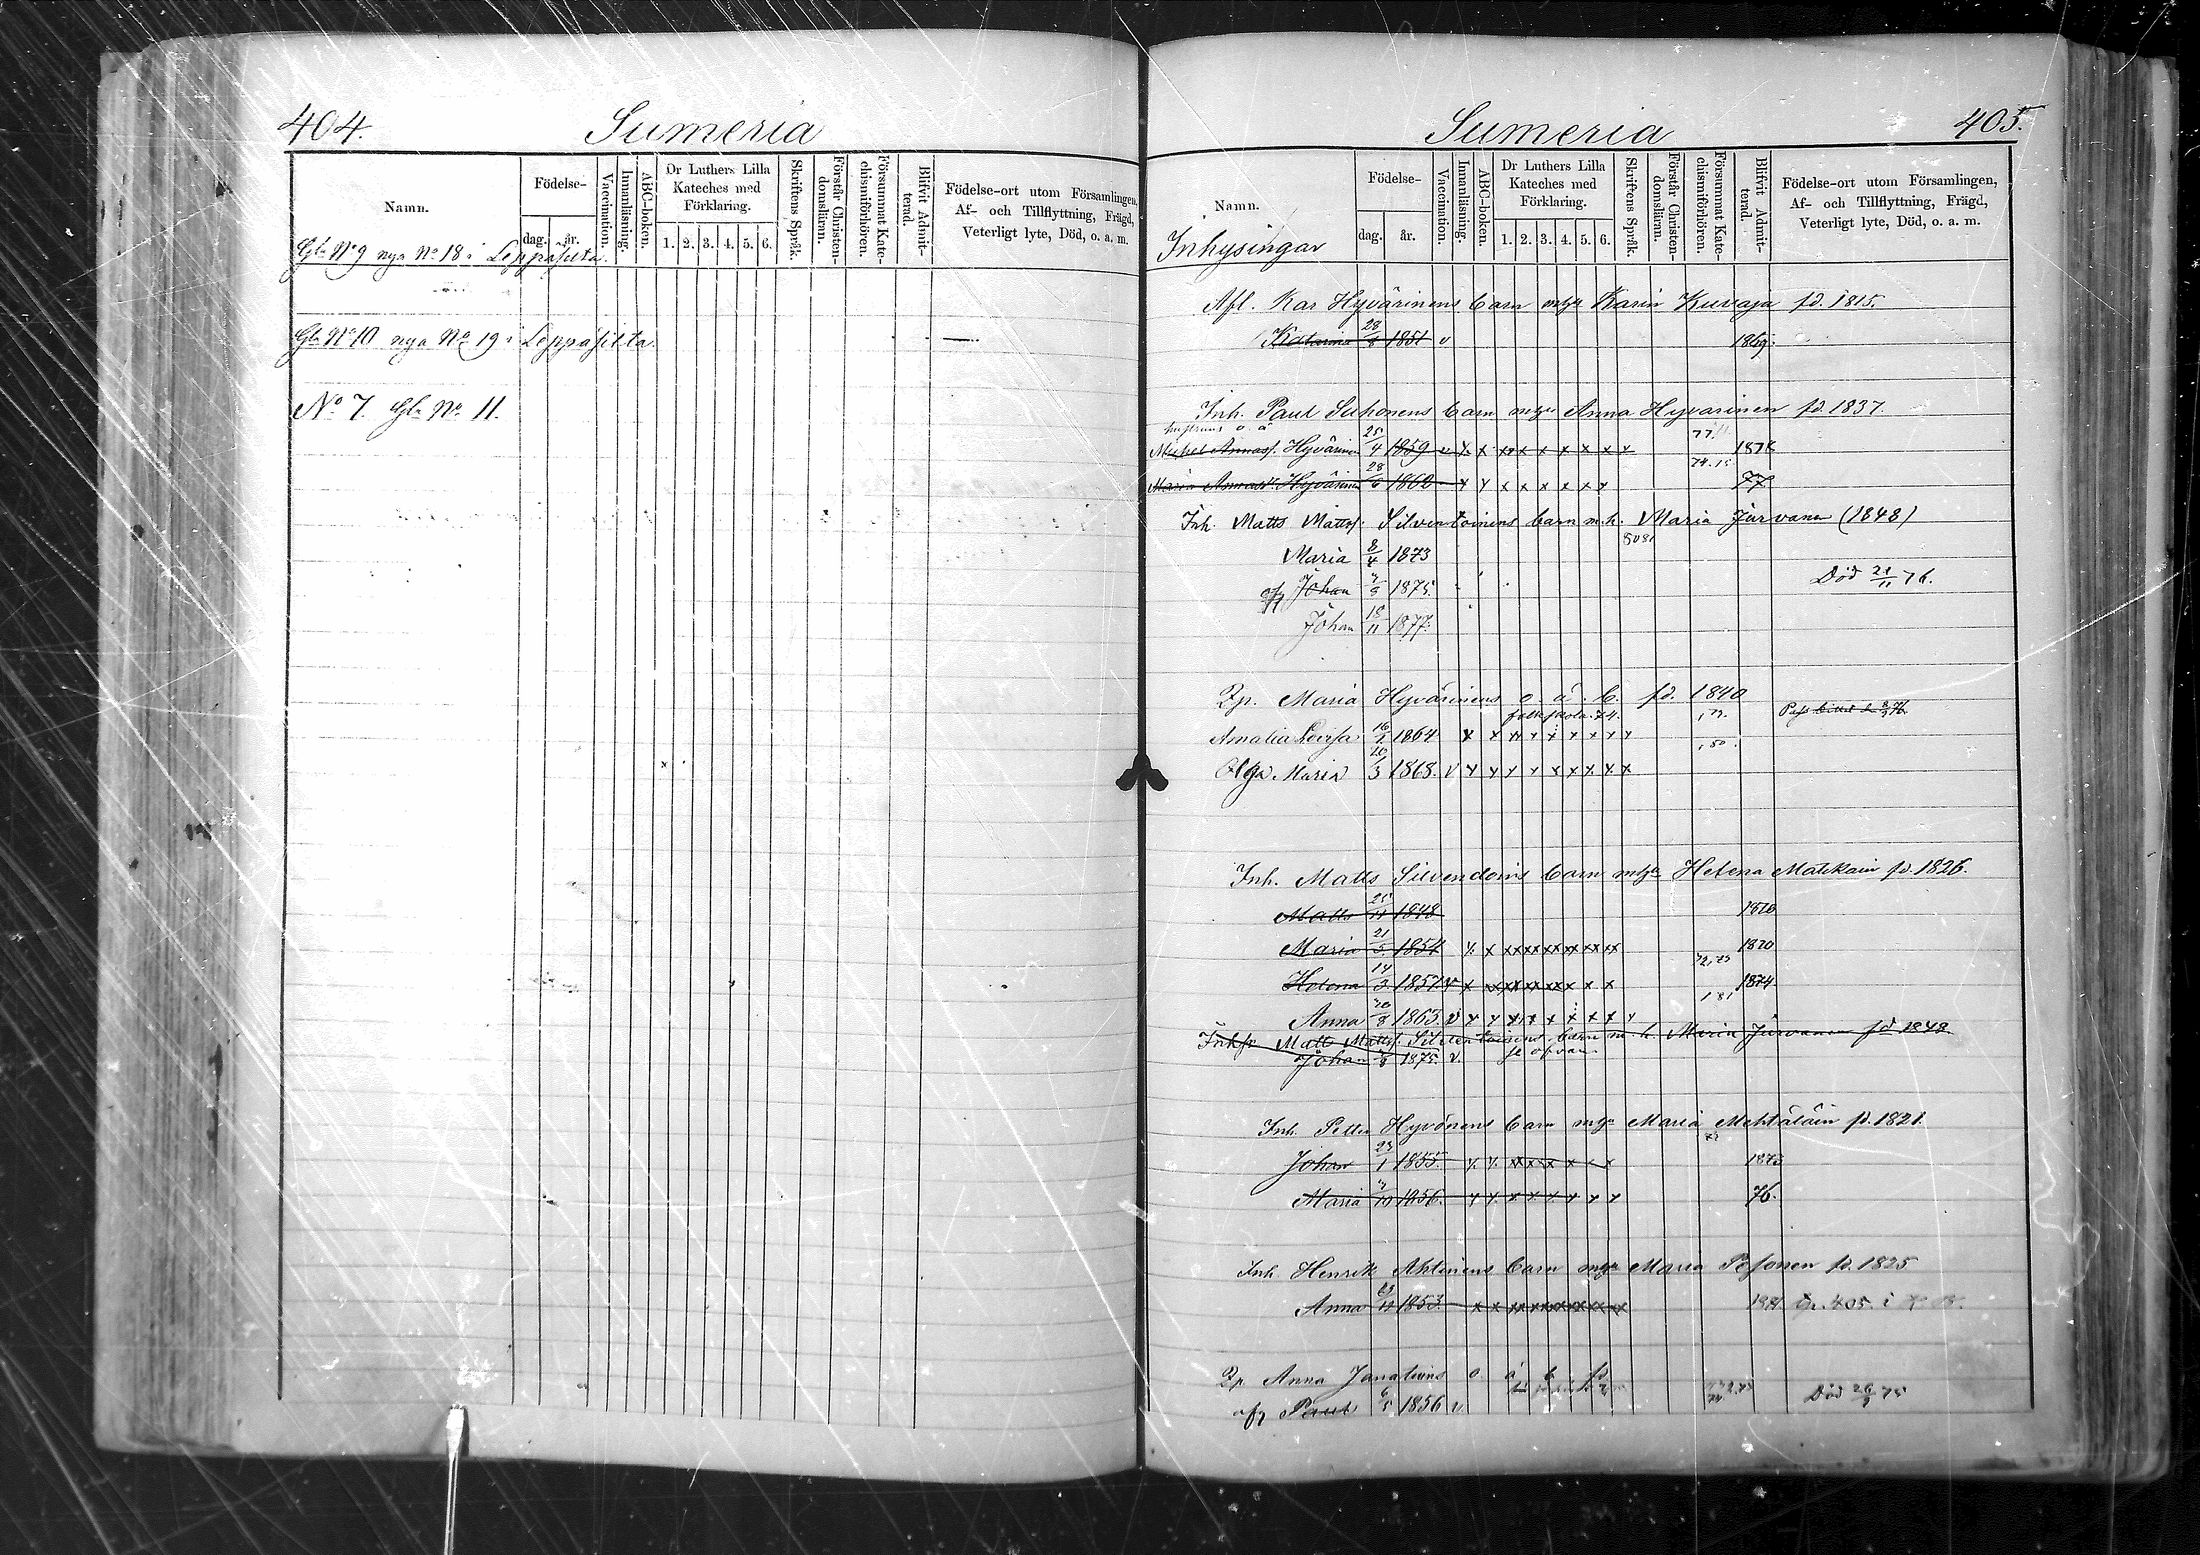 404.
Sumeria
Namn.
Födelse-
dag. år.
Vaccination.
Innanläsning.
ABC-boken.
Dr Luthers Lilla Kateches med Förklaring.
1. 2. 3. 4. 5. 6.
Skriftens Språk.
Förstår Christendomsläran.
Försummat Katechismiförhören.
Blifvit Admitterad.
Födelse-ort utom Församlingen,
Af- och Tillflyttning, Frägd,
Veterligt lyte, Död, o. a. m.
Gla No 9 nya No 18 i Leppäsilta.
Gla No 10 nya No 19 i Leppäsilta.
No 7. Gla No 11.
Sumeria
405.
Namn.
Födelse-
dag. år.
Vaccination.
Innanläsning.
ABC-boken.
Dr Luthers Lilla Kateches med Förklaring.
1. 2. 3. 4. 5. 6.
Skriftens Språk.
Förstår Christendomsläran.
Försummat Katechismiförhören.
Blifvit Admitterad.
Födelse-ort utom Församlingen,
Af- och Tillflyttning, Frägd,
Veterligt lyte, Död, o. a. m.
Inhysingar
Afl. Kar Hyvärinens barn m Karin Kuvaja fd. 1815.
Katarina 28/8 1851 v 1869.
Inh. Paul Suhonens barn m Anna Hyvärinen fd. 1837.
hustruns o. ä
77.
Michel Annass. Hyvärinen 25/4 1859 v x x x x x x x x x x 1878
74. 15
Maria Annasd. Hyvärinen 28/6 1862 x x x x x x x x 77.
Inh. Matts Mattss. Silventoinens barn m. h. Maria Jurvanen (1848)
Maria 8/4 1873
Johan 1875. Död 21/11 76.
Johan 18/11 1877.
Maria Hyvärinens o. ä. b. fd. 1840
folkskola. 74.
Amalia Lovisa 16/1 1864 x x x x x x x x x
80.
Olga Maria 20/3 1868. v x x x x x x x x x
Inh. Matts Silvendoins barn m Helena Matikain fd. 1826.
Matts 25/11 1848
Maria 21/5 1854 x x x x x x x x x 1870
Helena 14/3 1857 v x x x x x x x x 1874
181
Anna 1863. v x x x x x x x x x
Matts Mattss. Silventoinens barn m. h. Maria Jurvanen fd 1848
Johan 1875. v. se ofvan
Inh. Petter Hyvönens barn m Maria Mehtäläin fd. 1821.
Johan 23/1 1855. x x x x x x x x 1873
Maria 1856. x x x x x x x x 76.
Inh. Henrik Ahtinens barn m Maria Pesonen fd. 1825
Anna 1853. x x x x x x x x x x 405. i
Anna o. ä b. fd
Paul 6/5 1856 v Död 75